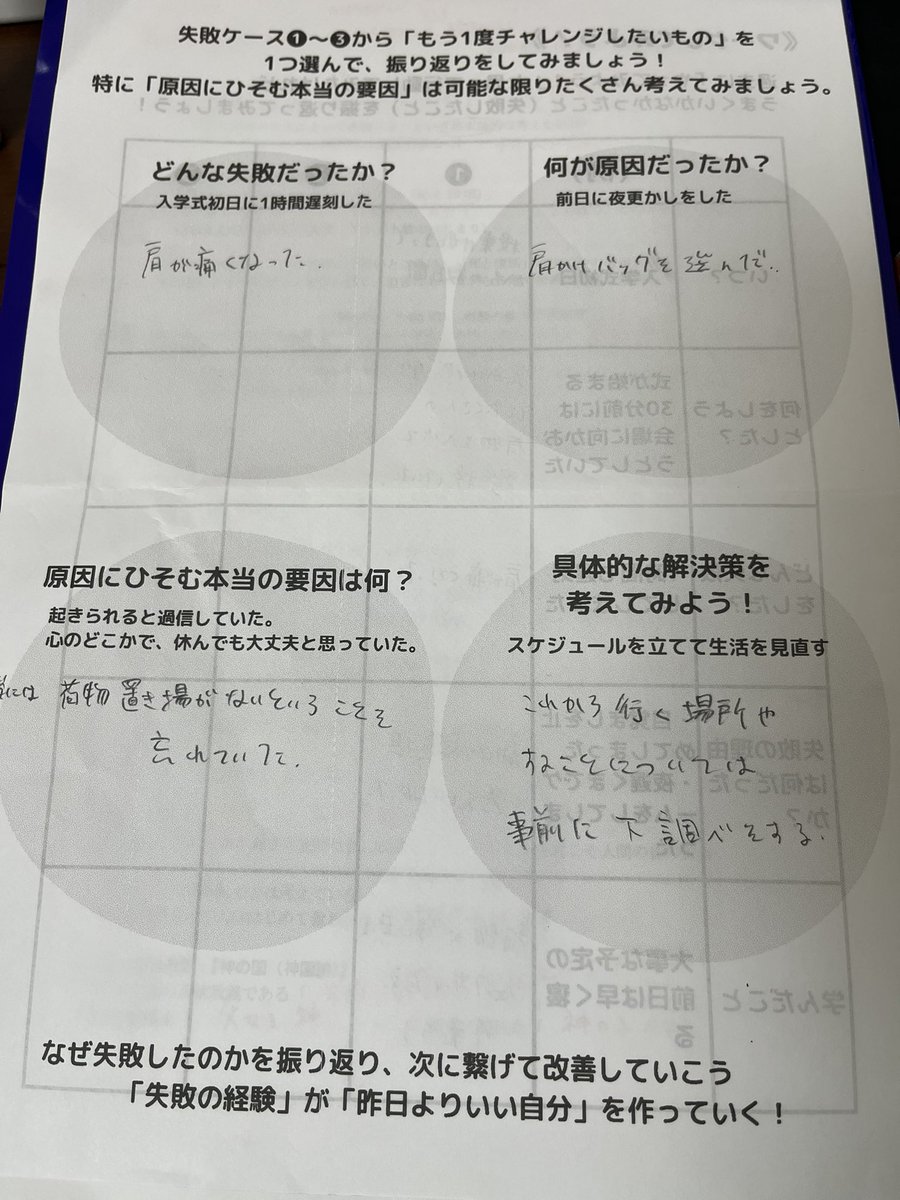 失敗ケース❶〜❸から「もう1度チャレンジしたいもの」を
1つ選んで、振り返りをしてみましょう！
特に「原因にひそむ本当の要因」は可能な限りたくさん考えてみましょう。
どんな失敗だったか？
入学式初日に1時間遅刻した
肩が痛くなった.
何が原因だったか？
前日に夜更かしをした
肩かけバッグを選んで..
原因にひそむ本当の要因は何？
起きられると過信していた。
心のどこかで、休んでも大丈夫と思っていた。
には 荷物置き場がないということを
忘れていた.
具体的な解決策を
考えてみよう！
スケジュールを立てて生活を見直す
これから行く場所や
することについては
事前に下調べをする.
なぜ失敗したのかを振り返り、次に繋げて改善していこう
「失敗の経験」が「昨日よりいい自分」を作っていく！